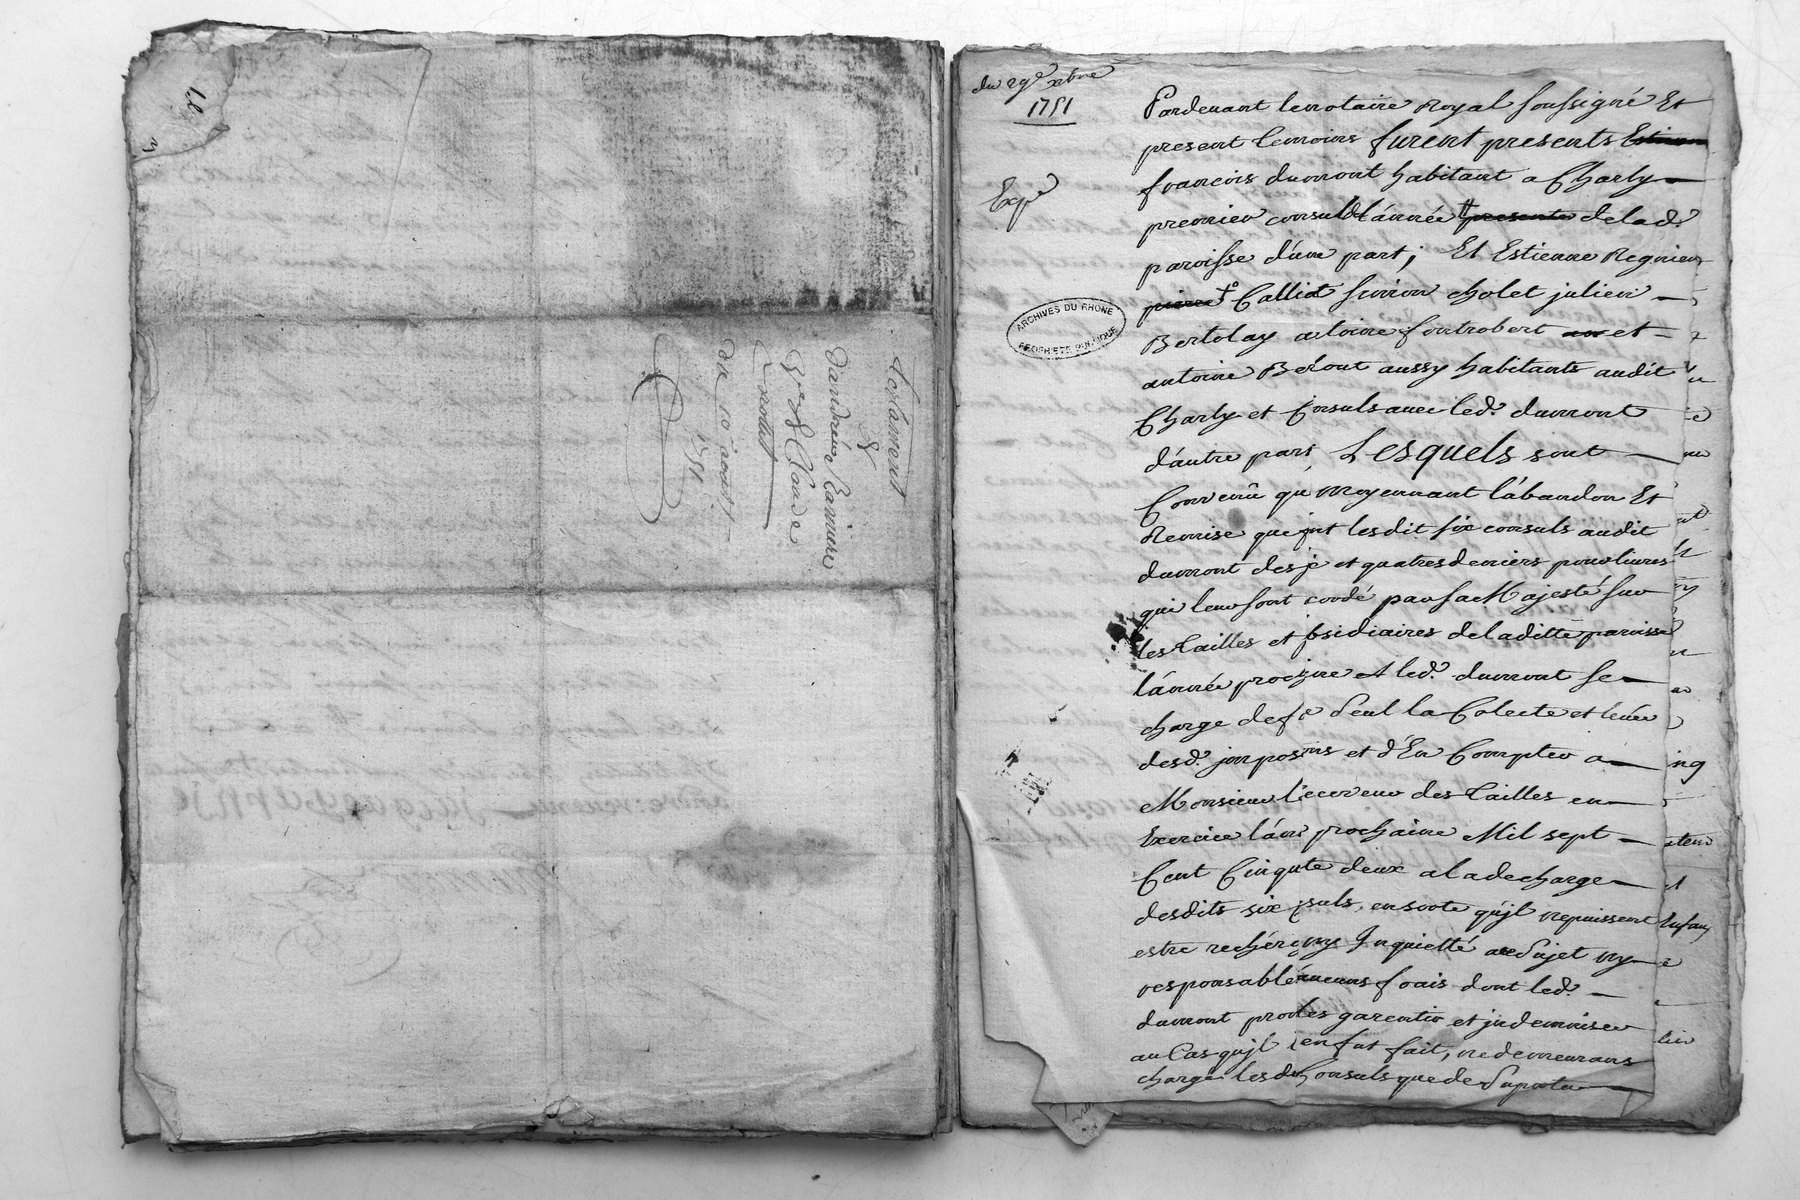 Testament
De
d'andrée
Ve de Claude
du 10 aoust
1751
du 29e xbre
1751
Expé
ARCHIVES DU RHONE
PROPRIETE PUBLIQUE
Pardevant le notaire Royal soussigné Et
present temoins furent presents Estienne
francois dumont habitant a Charly
premier consul l'année presente de lad.
paroisse d'une part; Et Estienne Regnier
pierre Calliat simon cholet julien
Bertolay antoine fontrobert et
antoine Belout aussy habitants audit
Charly et Consuls avec led. dumont
d'autre part, Lesquels sont
Convenû qu'moyennant l'abandon Et
Remise que font lesdit six consuls audit
dumont des six et quatres deniers pour livres
qui leur sont accordé par sa Majesté sur
les tailles et subsidiaires de laditte paroisse
l'année prochaine led. dumont se
charge de faire seul la Colecte et levée
desd. impositions et d'En Compter a
Monsieur le receveur des tailles en
Exercice l'année prochaine Mil sept
Cent Cinqute deux a la decharge
desdits six consuls, en sorte qu'jl ne puissent
estre recherché ny Inquietté au Sujet ny
responsable d'aucuns frais dont led.
dumont promet les garentir et jndemniser
au Cas qu'jl en fut fait, ne demeurans
chargé lesd. Consuls que de Suporter